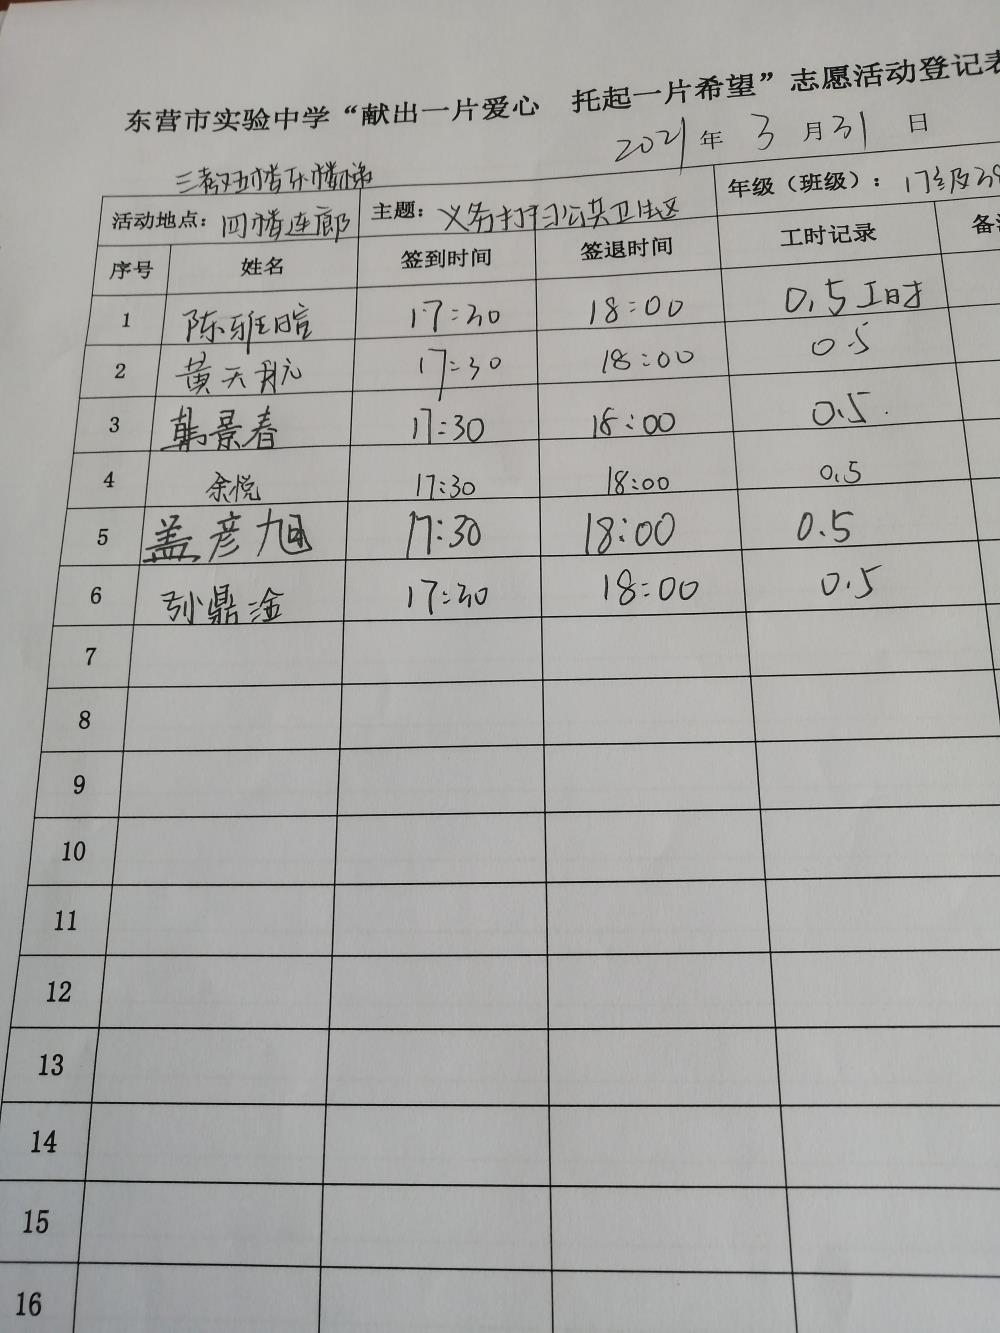 东营市实验中学“献出一片爱心 托起一片希望”志愿活动登记表
2021年 3月31日
三教 五楼东楼梯
活动地点：四楼连廊 主题：义务打扫公共卫生区 年级（班级）：17级
序号 姓名 签到时间 签退时间 工时记录 备
1 陈雅暄 17:30 18:00 0.5工时
2 黄天航 17:30 18:00 0.5
3 韩景春 17:30 18:00 0.5
4 余悦 17:30 18:00 0.5
5 盖彦旭 17:30 18:00 0.5
6 孙鼎淦 17:30 18:00 0.5
7
8
9
10
11
12
13
14
15
16